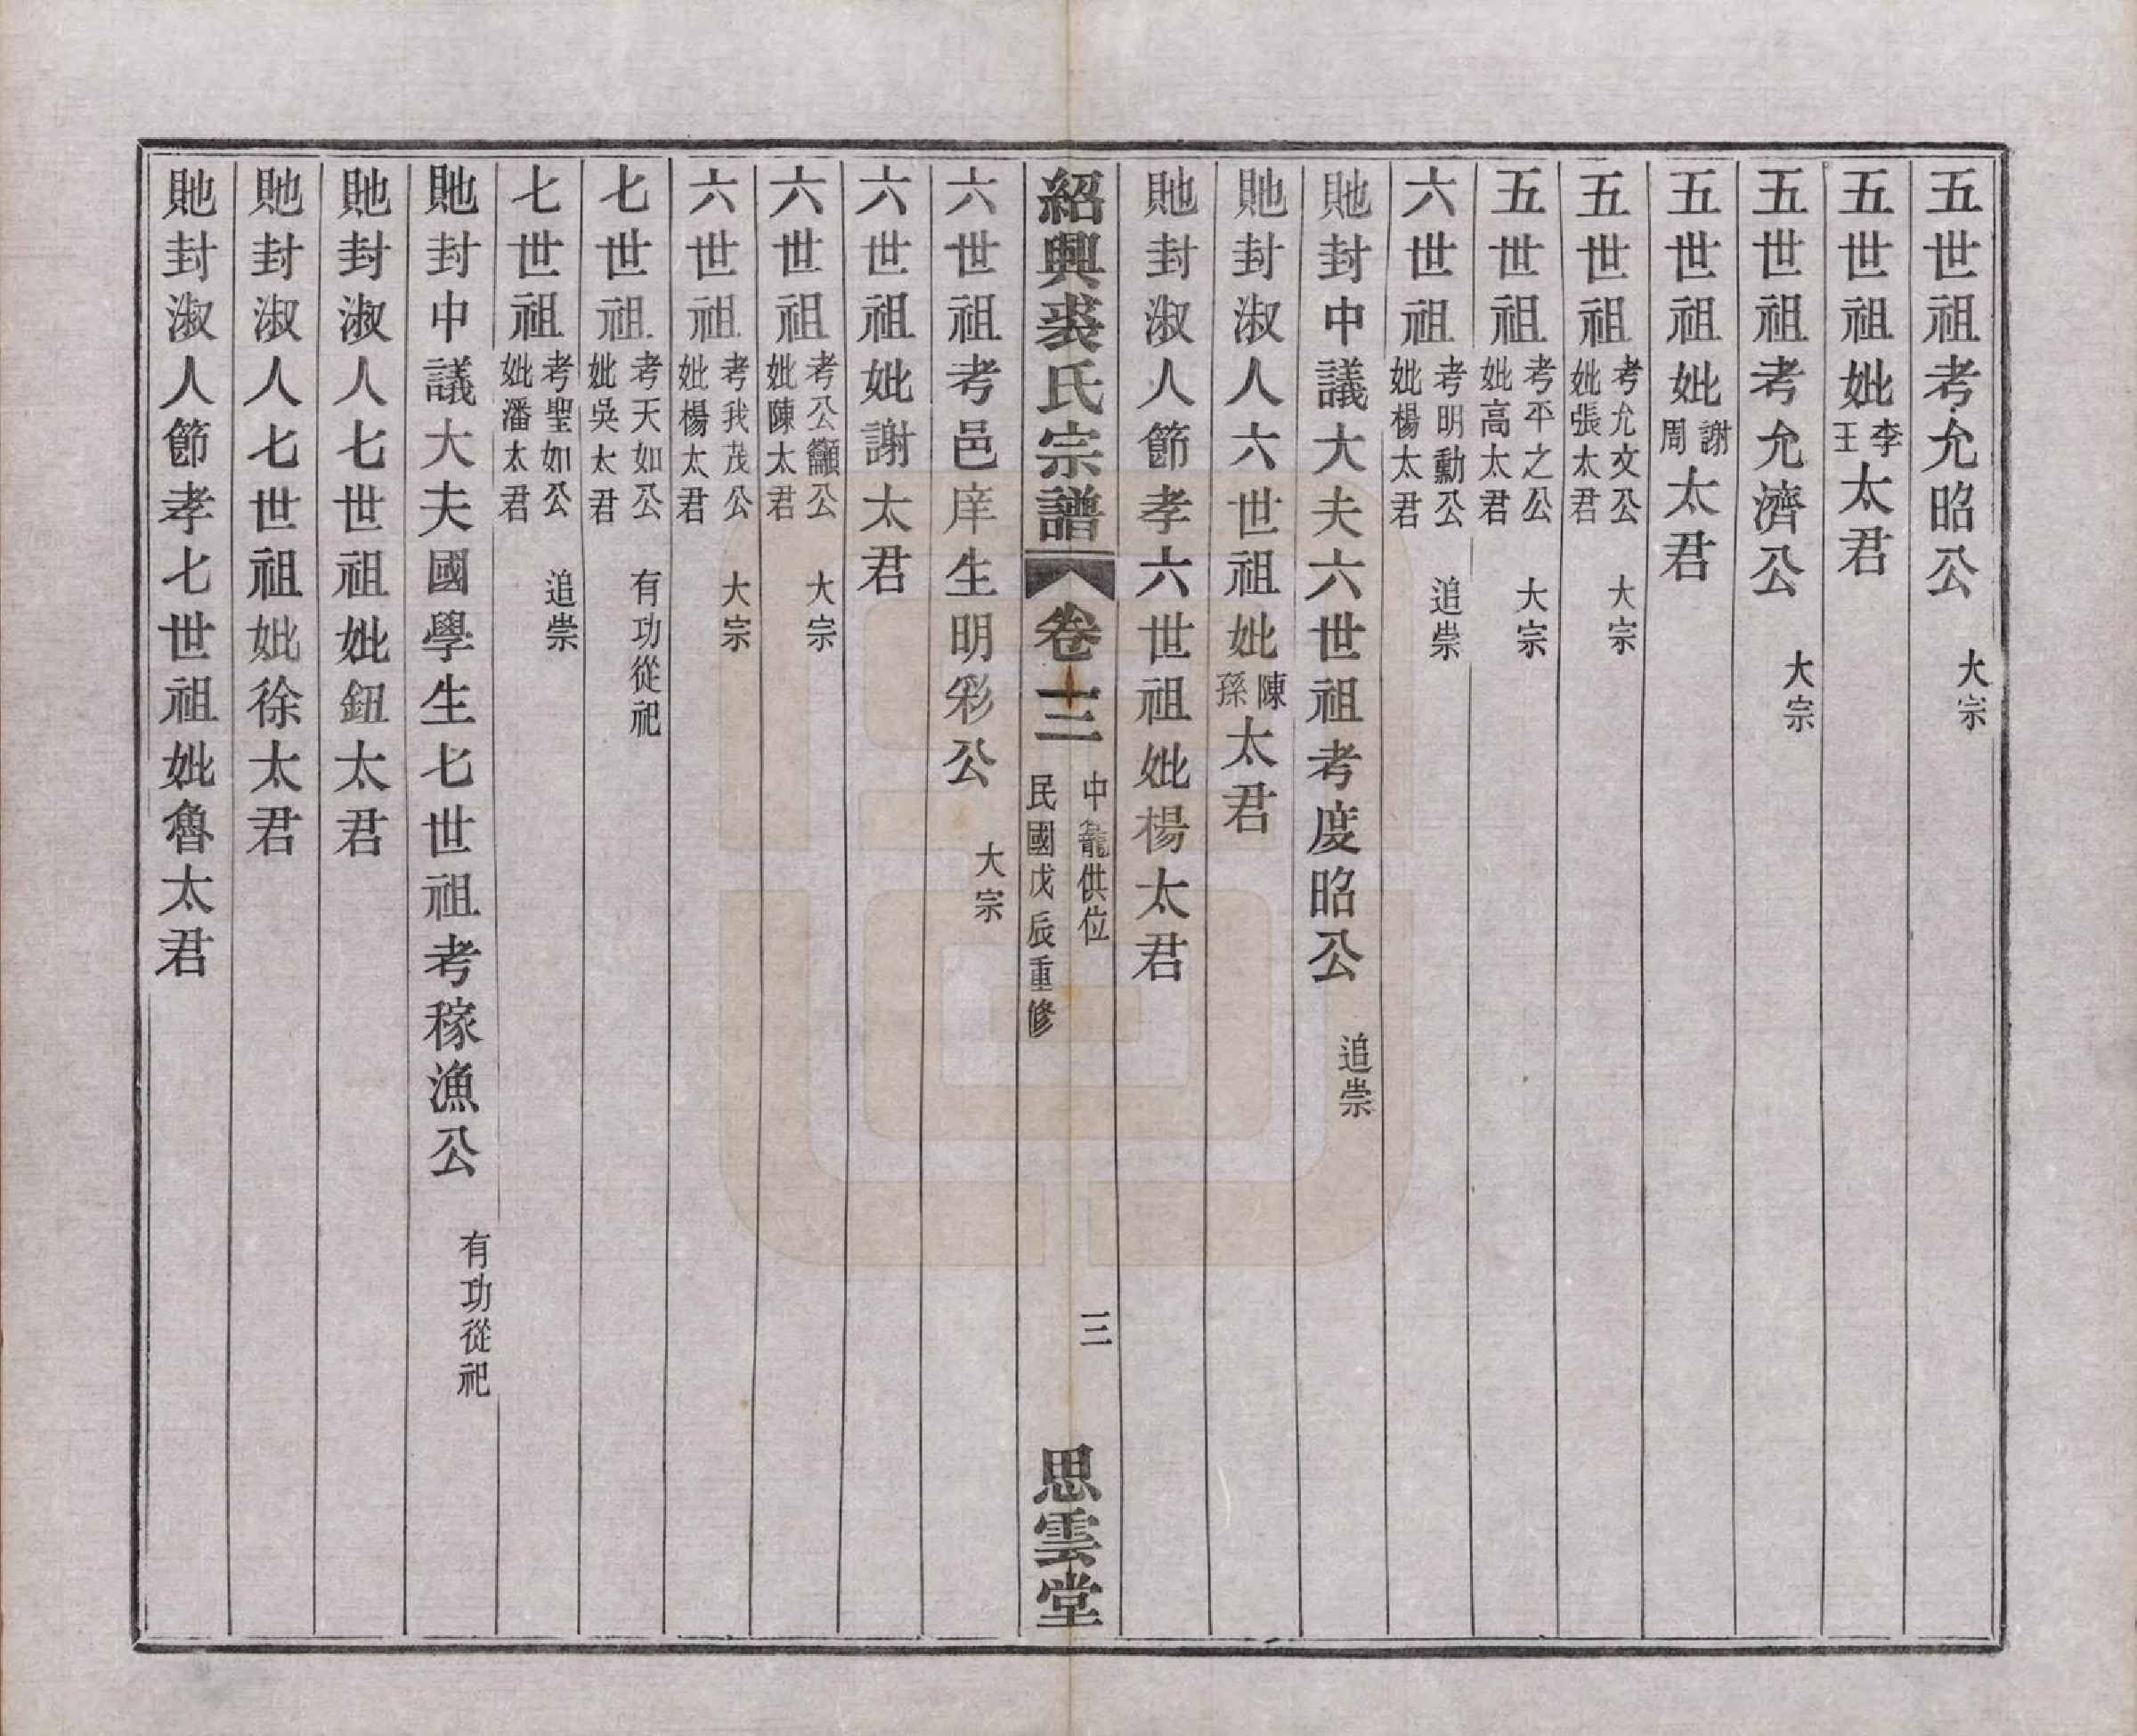 五世祖考允昭公 大宗
五世祖妣李王太君
五世祖考允濟公 大宗
五世祖妣謝周太君
五世祖考允文公妣張太君 大宗
五世祖考平之公妣高太君 大宗
六世祖考明勳公妣楊太君 追崇
貤封中議大夫六世祖考度昭公 追崇
貤封淑人六世祖妣陳孫太君
貤封淑人節孝六世祖妣楊太君
紹興裘氏宗譜 卷三 中龕供位 民國戊辰重修 三 思雲堂
六世祖考邑庠生明彩公 大宗
六世祖妣謝太君
六世祖考公籲公妣陳太君 大宗
六世祖考我茂公妣楊太君 大宗
七世祖考天如公妣吳太君 有功從祀
七世祖考聖如公妣潘太君 追崇
貤封中議大夫國學生七世祖考稼漁公 有功從祀
貤封淑人七世祖妣鈕太君
貤封淑人七世祖妣徐太君
貤封淑人節孝七世祖妣魯太君